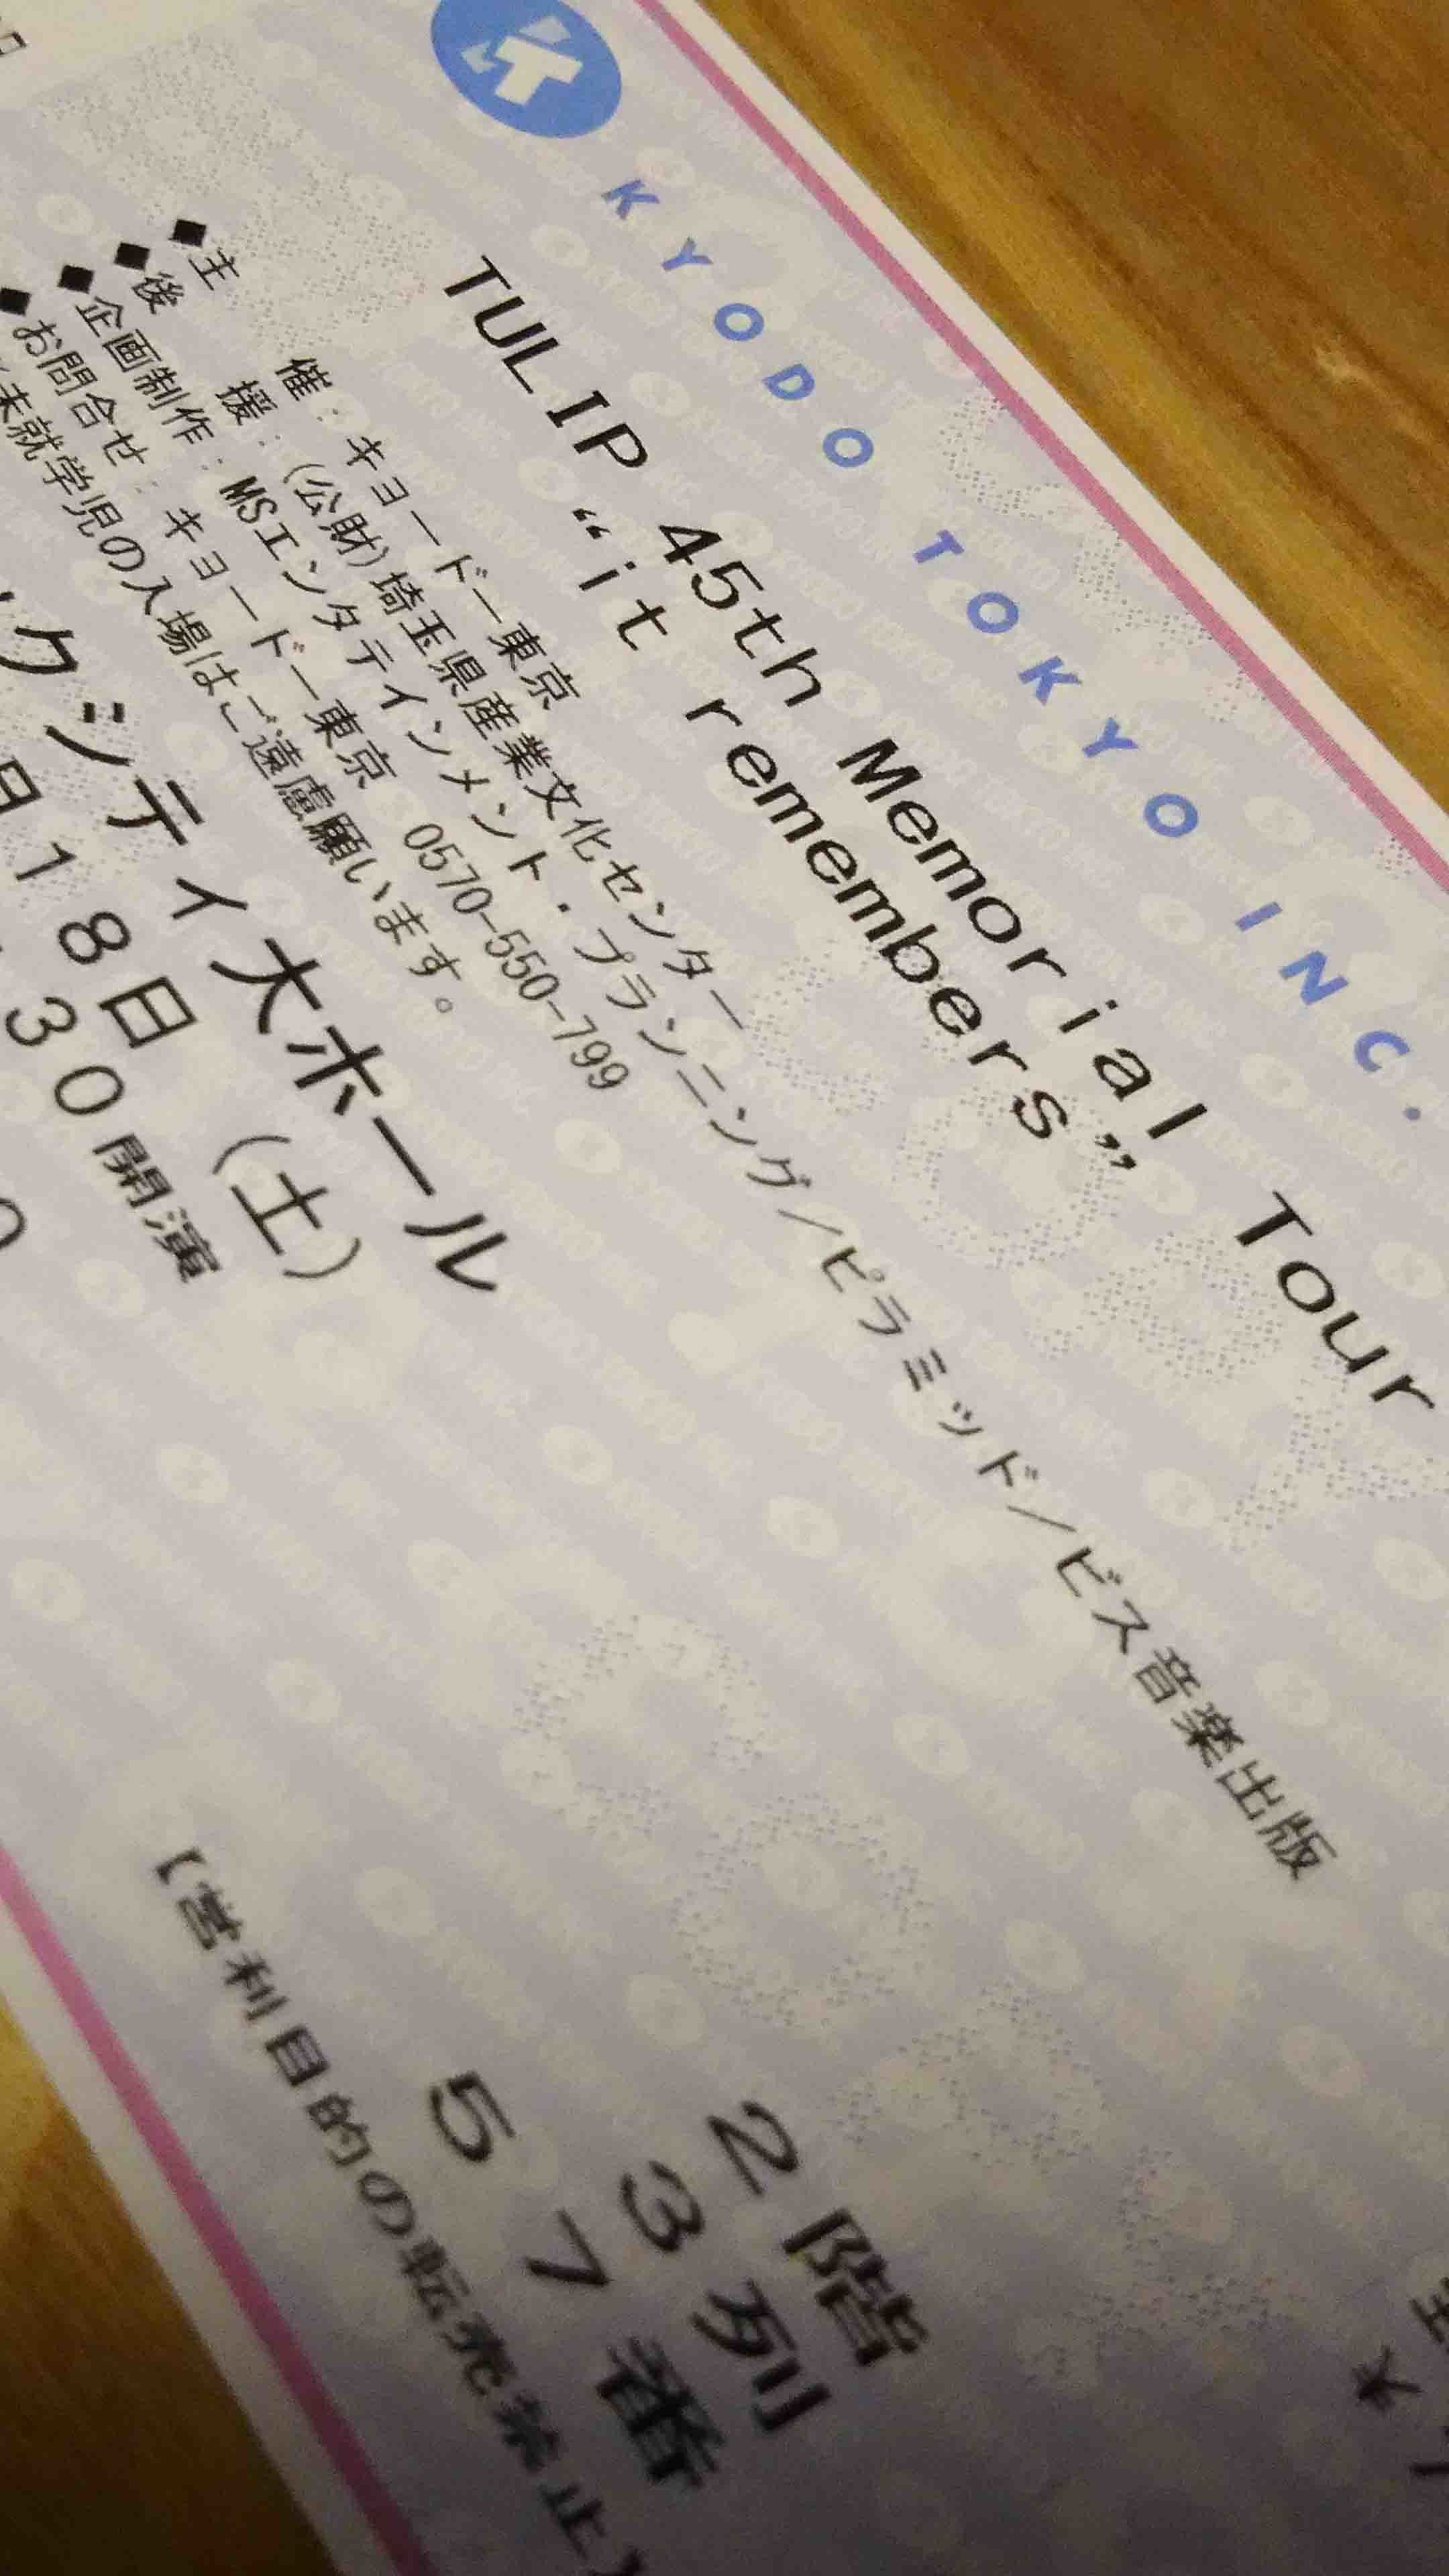 KYODO TOKYO INC.
TULIP 45th Memorial Tour
“it remembers”
◆主 催：キョードー東京
◆後 援：(公財)埼玉県産業文化センター
◆企画制作：MSエンタテインメント・プランニング/ピラミッド/ビス音楽出版
◆お問合せ：キョードー東京 0570-550-799
未就学児の入場はご遠慮願います。
クシティ大ホール
18日（土）
30開演
2階
3列
57番
【営利目的の転売禁止】